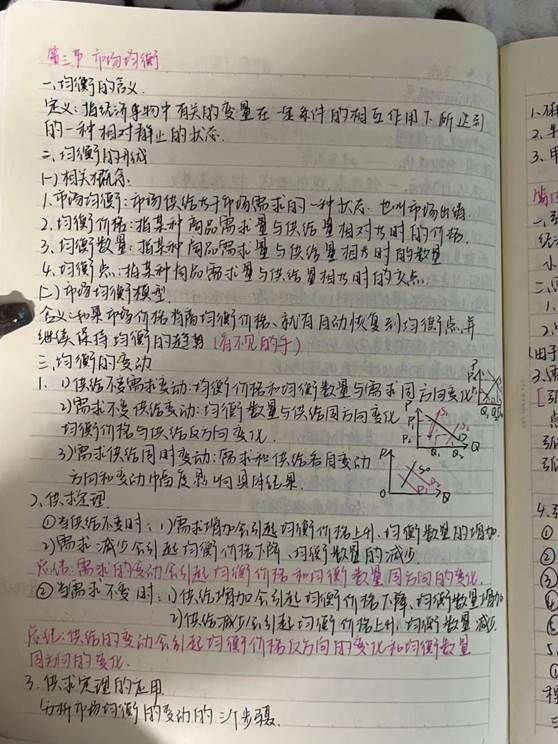 第三节 市场均衡
一、均衡的含义
定义:指经济事物中有关的变量在一定条件的相互作用下所达到
的一种相对静止的状态.
二、均衡的形成
(一)相关概念:
1.市场均衡:市场供给等于市场需求的一种状态.也叫市场出清.
2.均衡价格:指某种商品需求量与供给量相对等时的价格.
3.均衡数量:指某种商品需求量与供给量相等时的数量
4.均衡点:指某种商品需求量与供给量相等时的交点.
(二)市场均衡模型.
含义:如果市场价格偏离均衡价格、就有自动恢复到均衡点并
继续保持均衡的趋势(看不见的手)
三、均衡的变动
1. 1)供给不变需求变动:均衡价格和均衡数量与需求同方向变化
2)需求不变供给变动:均衡数量与供给同方向变化
均衡价格与供给反方向变化.
3)需求供给同时变动:需求和供给各自变动
方向和变动幅度影响具体结果.
2.供求定理.
①当供给不变时:1)需求增加会引起均衡价格上升、均衡数量的增加.
2)需求减少会引起均衡价格下降、均衡数量的减少.
总结:需求的变动会引起均衡价格和均衡数量同方向的变化.
②当需求不变时:1)供给增加会引起均衡价格下降、均衡数量增加
2)供给减少会引起均衡价格上升、均衡数量减少.
总结:供给的变动会引起均衡价格反方向的变化和均衡数量
同方向的变化.
3.供求定理的运用
分析市场均衡的变动的三个步骤.